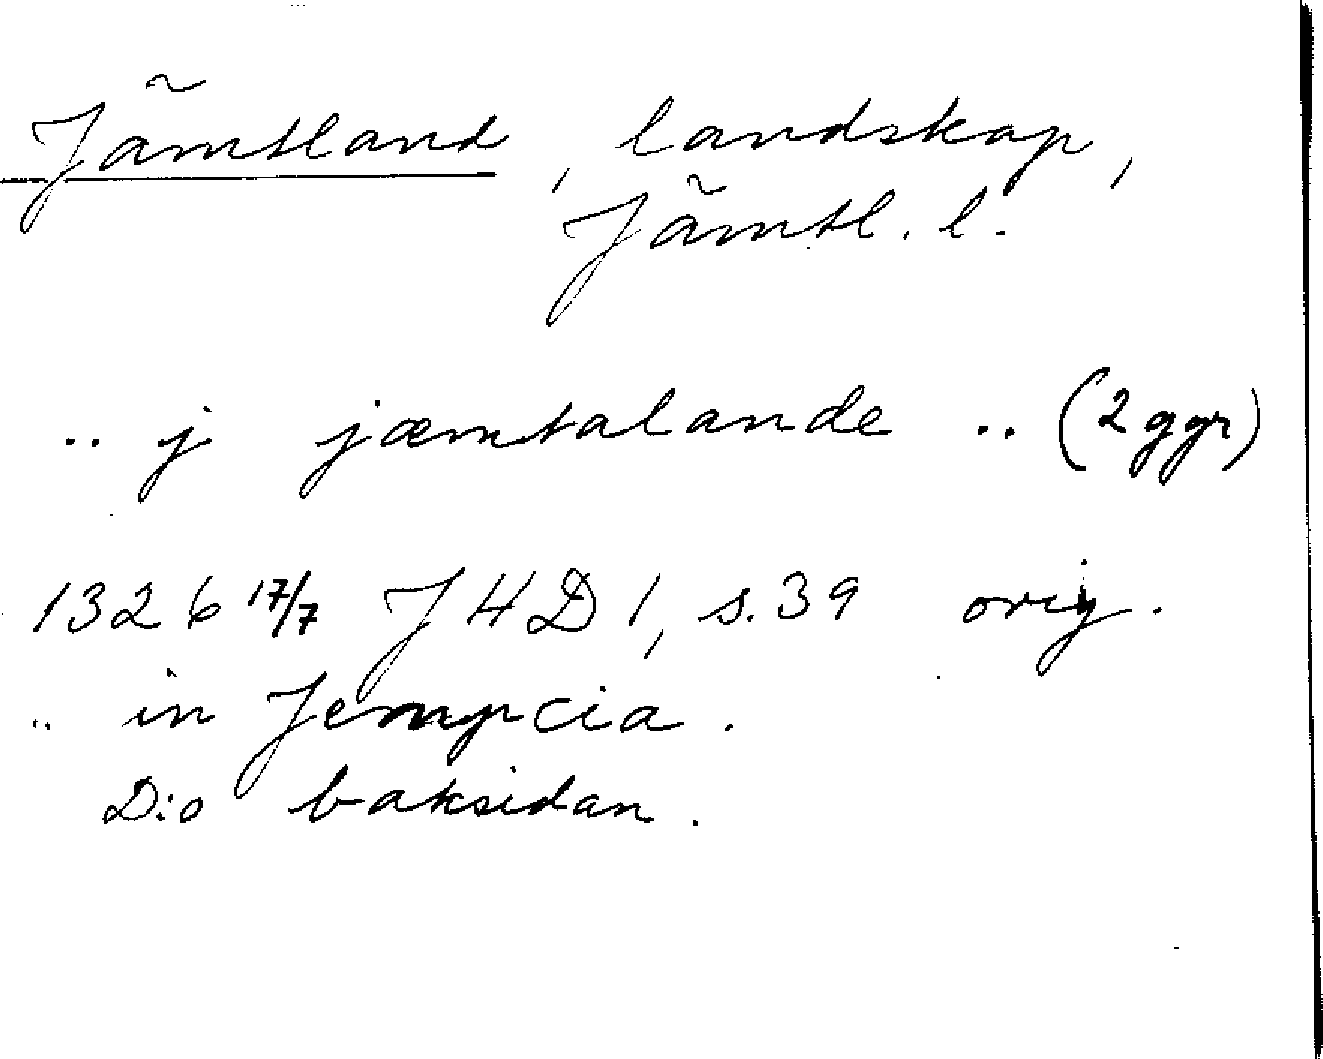 Jämtland, landskap,
Jämtl. l.
.. j jæmtalande .. (2 ggr)
1326 17/7 JHD 1, s. 39 orig.
.. in Jempcia.
D:o baksidan.